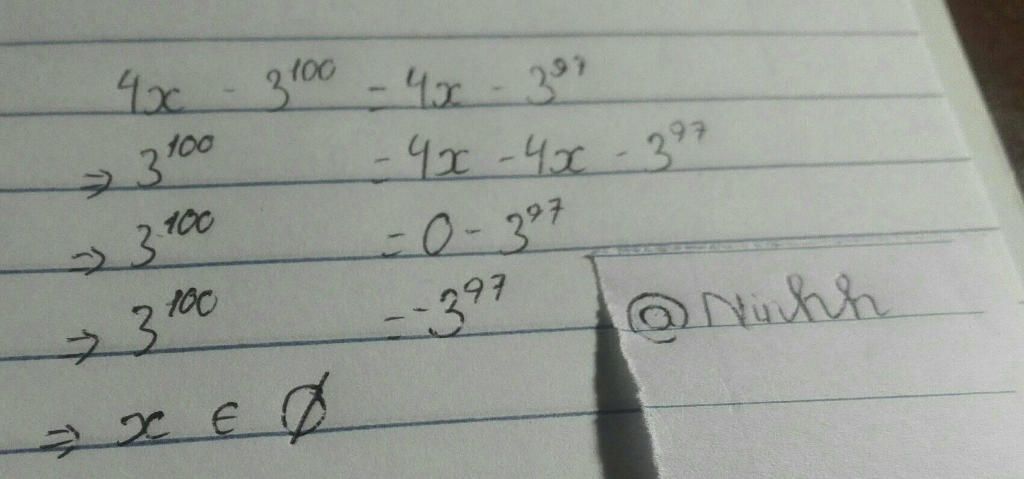 4x - 3¹⁰⁰ = 4x - 3⁹⁷
⇒ 3¹⁰⁰ = 4x - 4x - 3⁹⁷
⇒ 3¹⁰⁰ = 0 - 3⁹⁷
⇒ 3¹⁰⁰ = -3⁹⁷
@Ninhh
⇒ x ∈ ∅